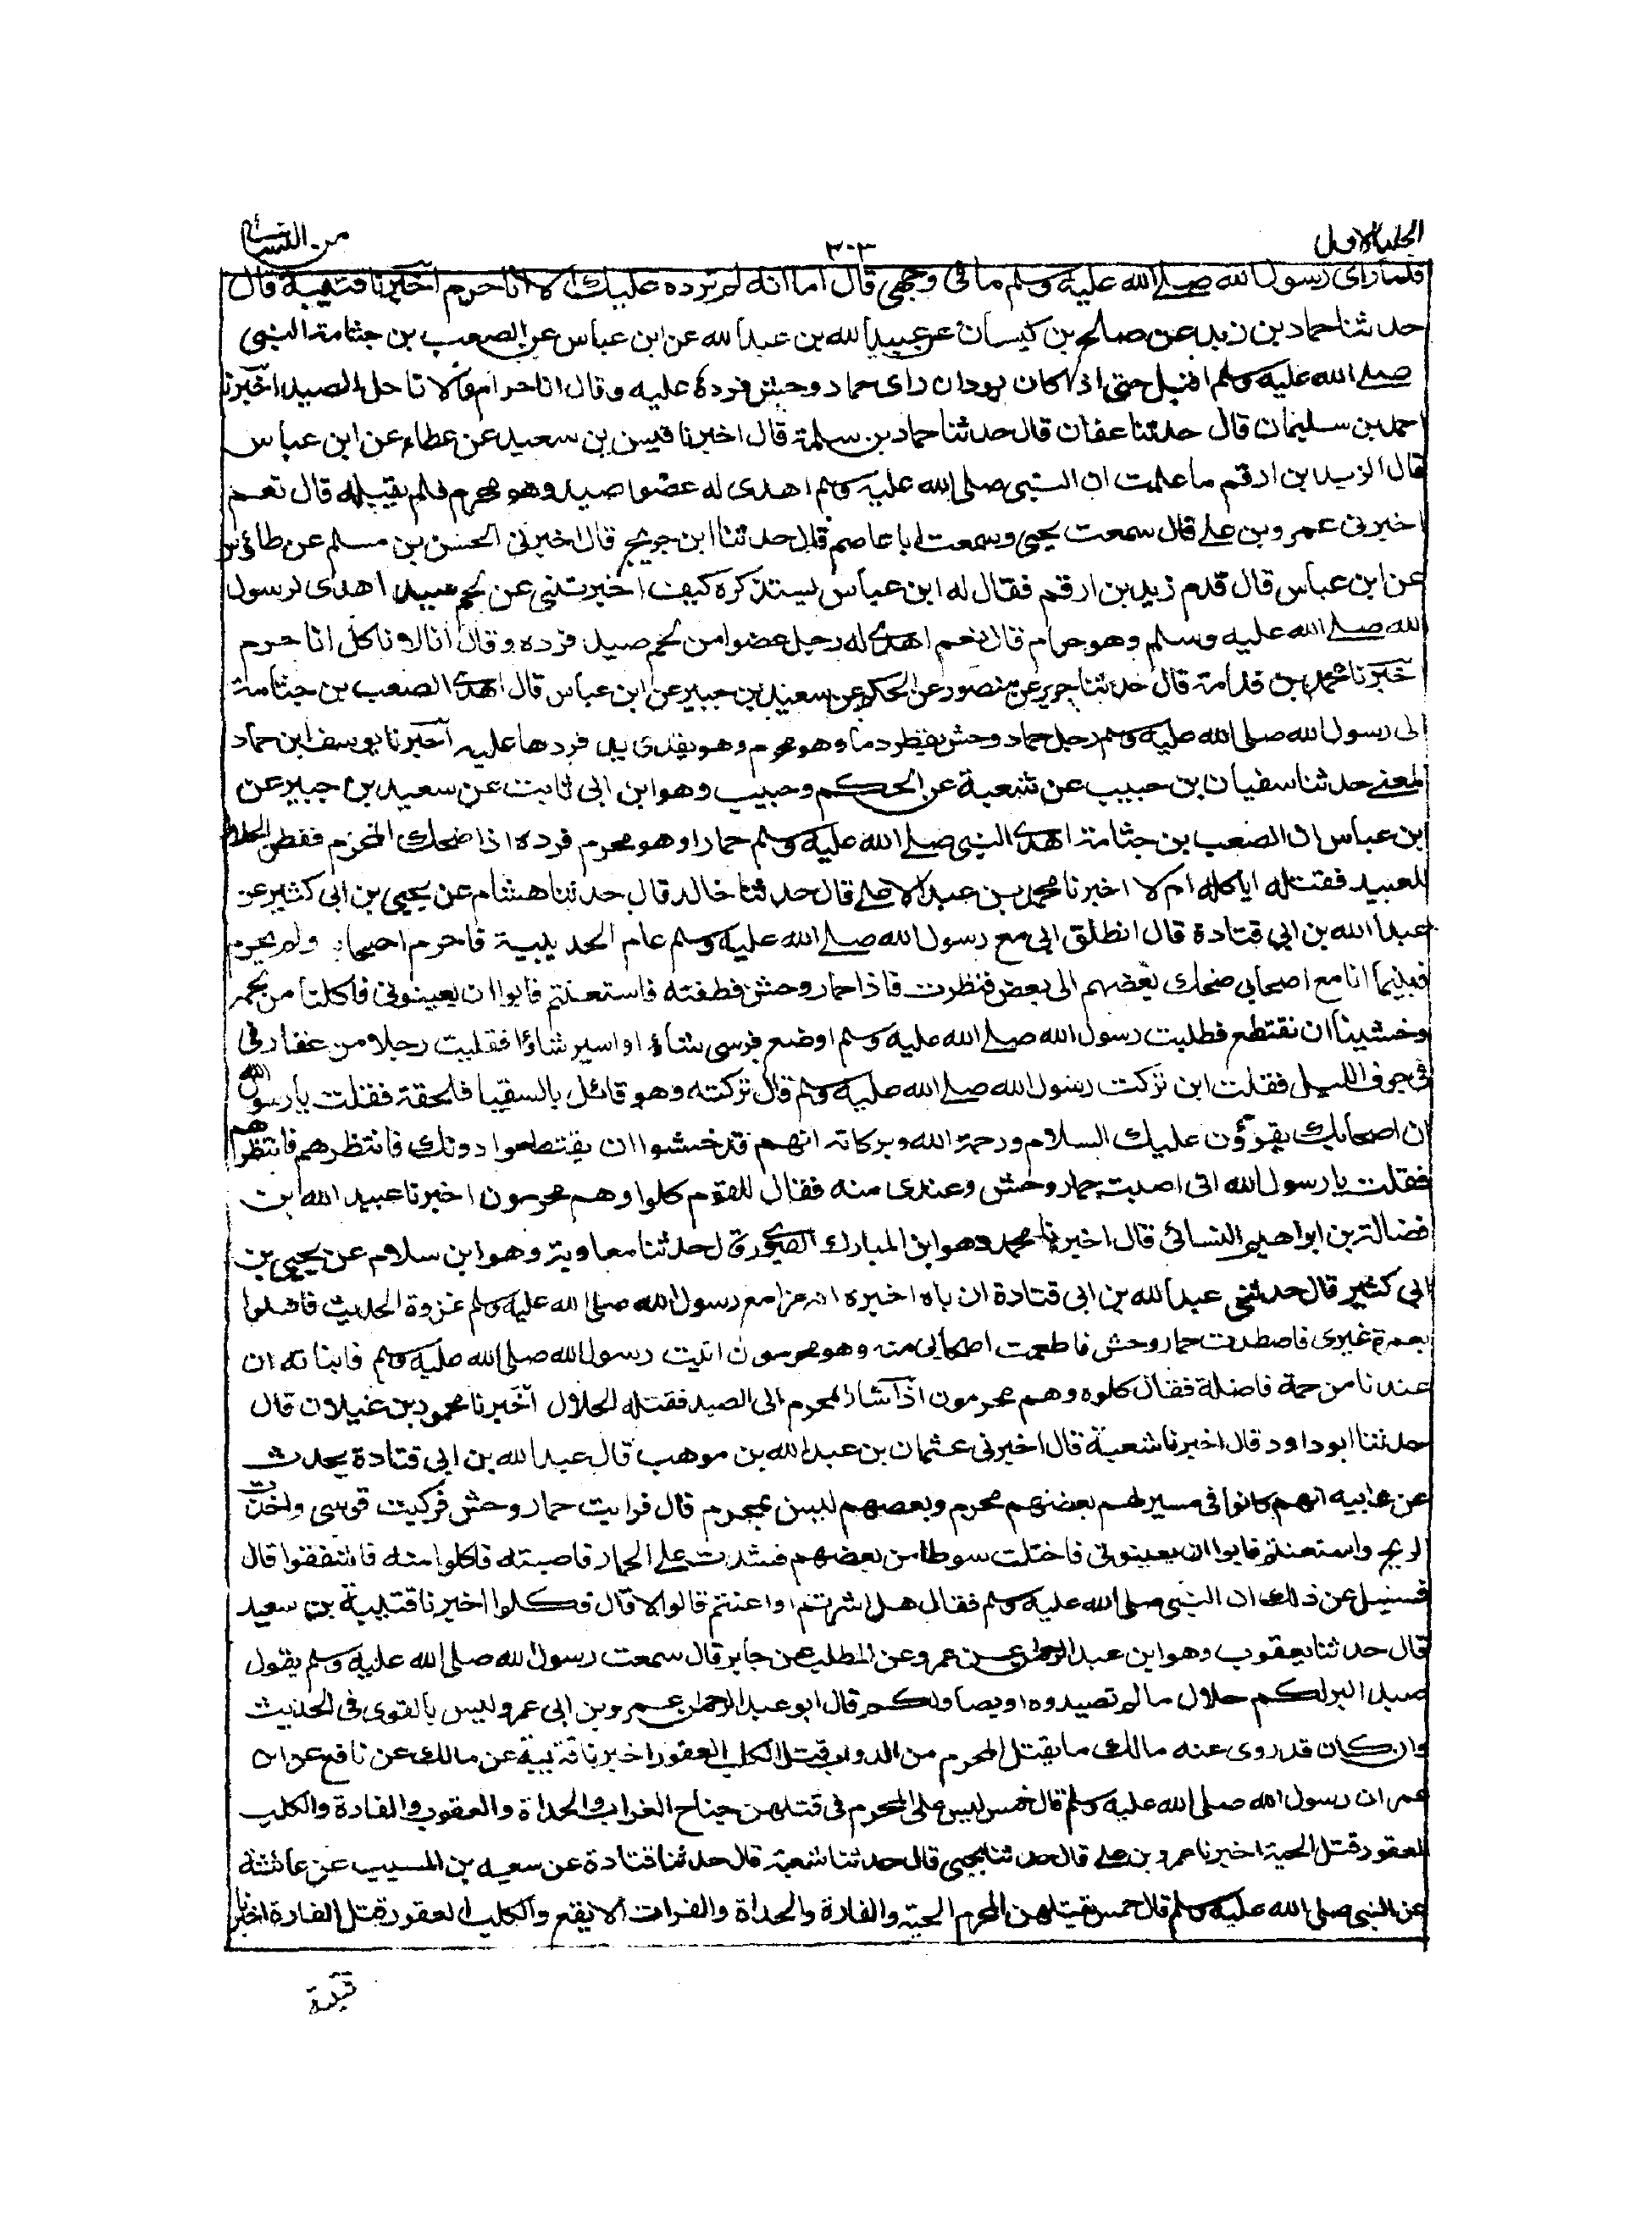 الجلد الاول
٣٠٣
من النسائي
فلما راى رسول الله صلے الله عليه وسلم ما فى وجهى قال اما انه لم نرده عليك الا انا حرم اخبرنا قتيبة قال
حدثنا حماد بن زيد عن صالح بن كيسان عن عبيد الله بن عبد الله عن ابن عباس عن الصعب بن جثامة النبى
صلے الله عليه وسلم اقبل حتى اذا كان بودان راى حمار وحش فرده عليه وقال انا حرام لا ناكل الصيد اخبرنا
احمد بن سليمان قال حدثنا عفان قال حدثنا حماد بن سلمة قال اخبرنا قيس بن سعيد عن عطاء عن ابن عباس
قال الزيد بن ارقم ما علمت ان النبى صلى الله عليه وسلم اهدى له عضوا صيد وهو محرم فلم يقبله قال نعم
اخبرنى عمرو بن على قال سمعت يحيى وسمعت ابا عاصم قال حدثنا ابن جريج قال اخبرنى الحسن بن مسلم عن طاؤس
عن ابن عباس قال قدم زيد بن ارقم فقال له ابن عباس يستذكره كيف اخبرتنى عن لحم صيد اهدى لرسول
الله صلے الله عليه وسلم وهو حرام قال نعم اهدى له رجل عضوا من لحم صيد فرده وقال انا لا ناكل انا حرم
خبرنا محمد بن قدامة قال حدثنا جرير عن منصور عن الحكم عن سعيد بن جبير عن ابن عباس قال اهدى الصعب بن جثامة
الى رسول الله صلى الله عليه وسلم رجل حمار وحش يقطر دما وهو محرم وهو بقديد فردها عليه اخبرنا يوسف ابن حماد
المعنى حدثنا سفيان بن حبيب عن شعبة عن الحكم وحبيب وهو ابن ابى ثابت عن سعيد بن جبير عن
ابن عباس ان الصعب بن جثامة اهدى النبى صلے الله عليه وسلم حمارا وهو محرم فرده اذا ضحك المحرم ففطن الحلال
للصيد فقتله اياكله ام لا اخبرنا محمد بن عبد الاعلى قال حدثنا خالد قال حدثنا هشام عن يحيى بن ابى كثير عن
عبد الله بن ابي قتادة قال انطلق ابى مع رسول الله صلے الله عليه وسلم عام الحديبية فاحرم اصحابه ولم يحرم
فبينما انا مع اصحابى ضحك بعضهم الى بعض فنظرت فاذا حمار وحش فطعنته فاستعنتم فابوا ان يعينونى فاكلنا من لحمه
وخشينا ان نقتطع فطلبت رسول الله صلے الله عليه وسلم اوضع فرسى شاؤا واسير شاؤا فلقيت رجلا من غفار فى
فى جوف الليل فقلت اين تركت رسول الله صلے الله عليه وسلم قال تركته وهو قائل بالسقيا فلحقة فقلت يا رسول الله
ان اصحابك يقرؤن عليك السلام ورحمة الله وبركاته انهم قد خشوا ان يقتطعوا دونك فانتظرهم فانتظرهم
فقلت يا رسول الله انى اصبت حمار وحش وعندى منه فقال للقوم كلوا وهم محرمون اخبرنا عبيد الله بن
فضالة بن ابراهيم النسائى قال اخبرنا محمد وهو ابن المبارك الصورى قال حدثنا معاوية وهو ابن سلام عن يحيى بن
ابى كثير قال حدثنى عبد الله بن ابى قتادة ان باه اخبره انه غزا مع رسول الله صلى الله عليه وسلم غزوة الحديث فاهلوا
بعمرة غيرى فاصطدت حمار وحش فاطعمت اصحابى منه وهو محرمون اتيت رسول الله صلى الله عليه وسلم فانباته ان
عندنا من حمة فاضلة فقال كلوه وهم محرمون اذا اشار المحرم الى الصيد فقتله الحلال اخبرنا محمود بن غيلان قال
حدثنا ابو داود قال اخبرنا شعبة قال اخبرنى عثمان بن عبد الله بن موهب قال عبد الله بن ابى قتادة يحدث
عن ابيه انهم كانوا فى مسير لهم بعضهم محرم وبعضهم ليس بمحرم قال فرايت حمار وحش فركبت فرسى واخذت
الريح واستعنتم فابوا ان يعينونى فاختلت سوطا من بعضهم فشدت على الحمار فاصبته فاكلوا منه فاشفقوا قال
فسئل عن ذلك ان النبى صلى الله عليه وسلم فقال هل اشرتم او اعنتم قالوا لا قال فكلوا اخبرنا قتيبة بن سعيد
قال حدثنا يعقوب وهو ابن عبد الرحمن عن عمرو عن المطلب عن جابر قال سمعت رسول الله صلى الله عليه وسلم يقول
صيد البر لكم حلال ما لم تصيدوه او يصاد لكم قال ابو عبد الرحمن عمرو بن ابى عمرو ليس بالقوى فى الحديث
وان كان قد روى عنه مالك ما يقتل المحرم من الدواب قتل الكلب العقور اخبرنا قتيبة عن مالك عن نافع عن ابن
عمر ان رسول الله صلى الله عليه وسلم قال خمس ليس على المحرم فى قتلهن جناح الغراب والحداة والعقرب والفارة والكلب
العقور قتل الحية اخبرنا عمرو بن على قال حدثنا يحيى قال حدثنا شعبة قال حدثنا قتادة عن سعيد بن المسيب عن عائشة
عن النبى صلى الله عليه وسلم قال خمس يقتلهن المحرم الحية والفارة والحداة والغراب الابقع والكلب العقور قتل الفارة اخبرنا
قتيبة